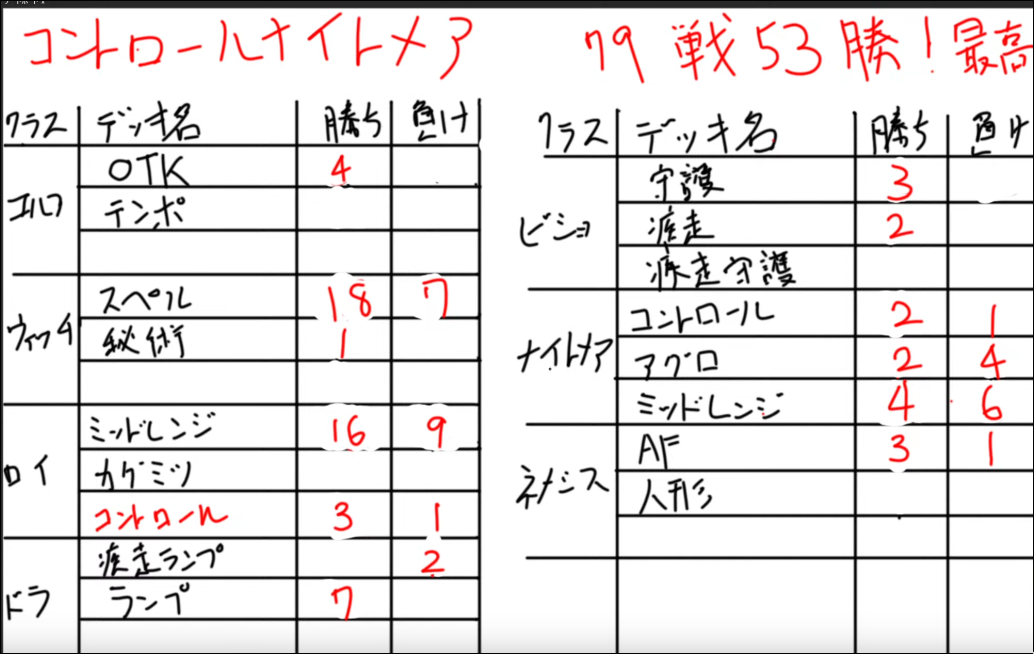 コントロールナイトメア
79戦53勝!最高
クラス デッキ名 勝ち 負け
エルフ
OTK 4
テンポ
ウィッチ
スペル 18 7
秘術 1
ロイ
ミッドレンジ 16 9
カゲミツ
コントロール 3 1
ドラ
疾走ランプ 2
ランプ 7
クラス デッキ名 勝ち 負け
ビショ
守護 3
疾走 2
疾走守護
ナイトメア
コントロール 2 1
アグロ 2 4
ミッドレンジ 4 6
ネメシス
AF 3 1
人形